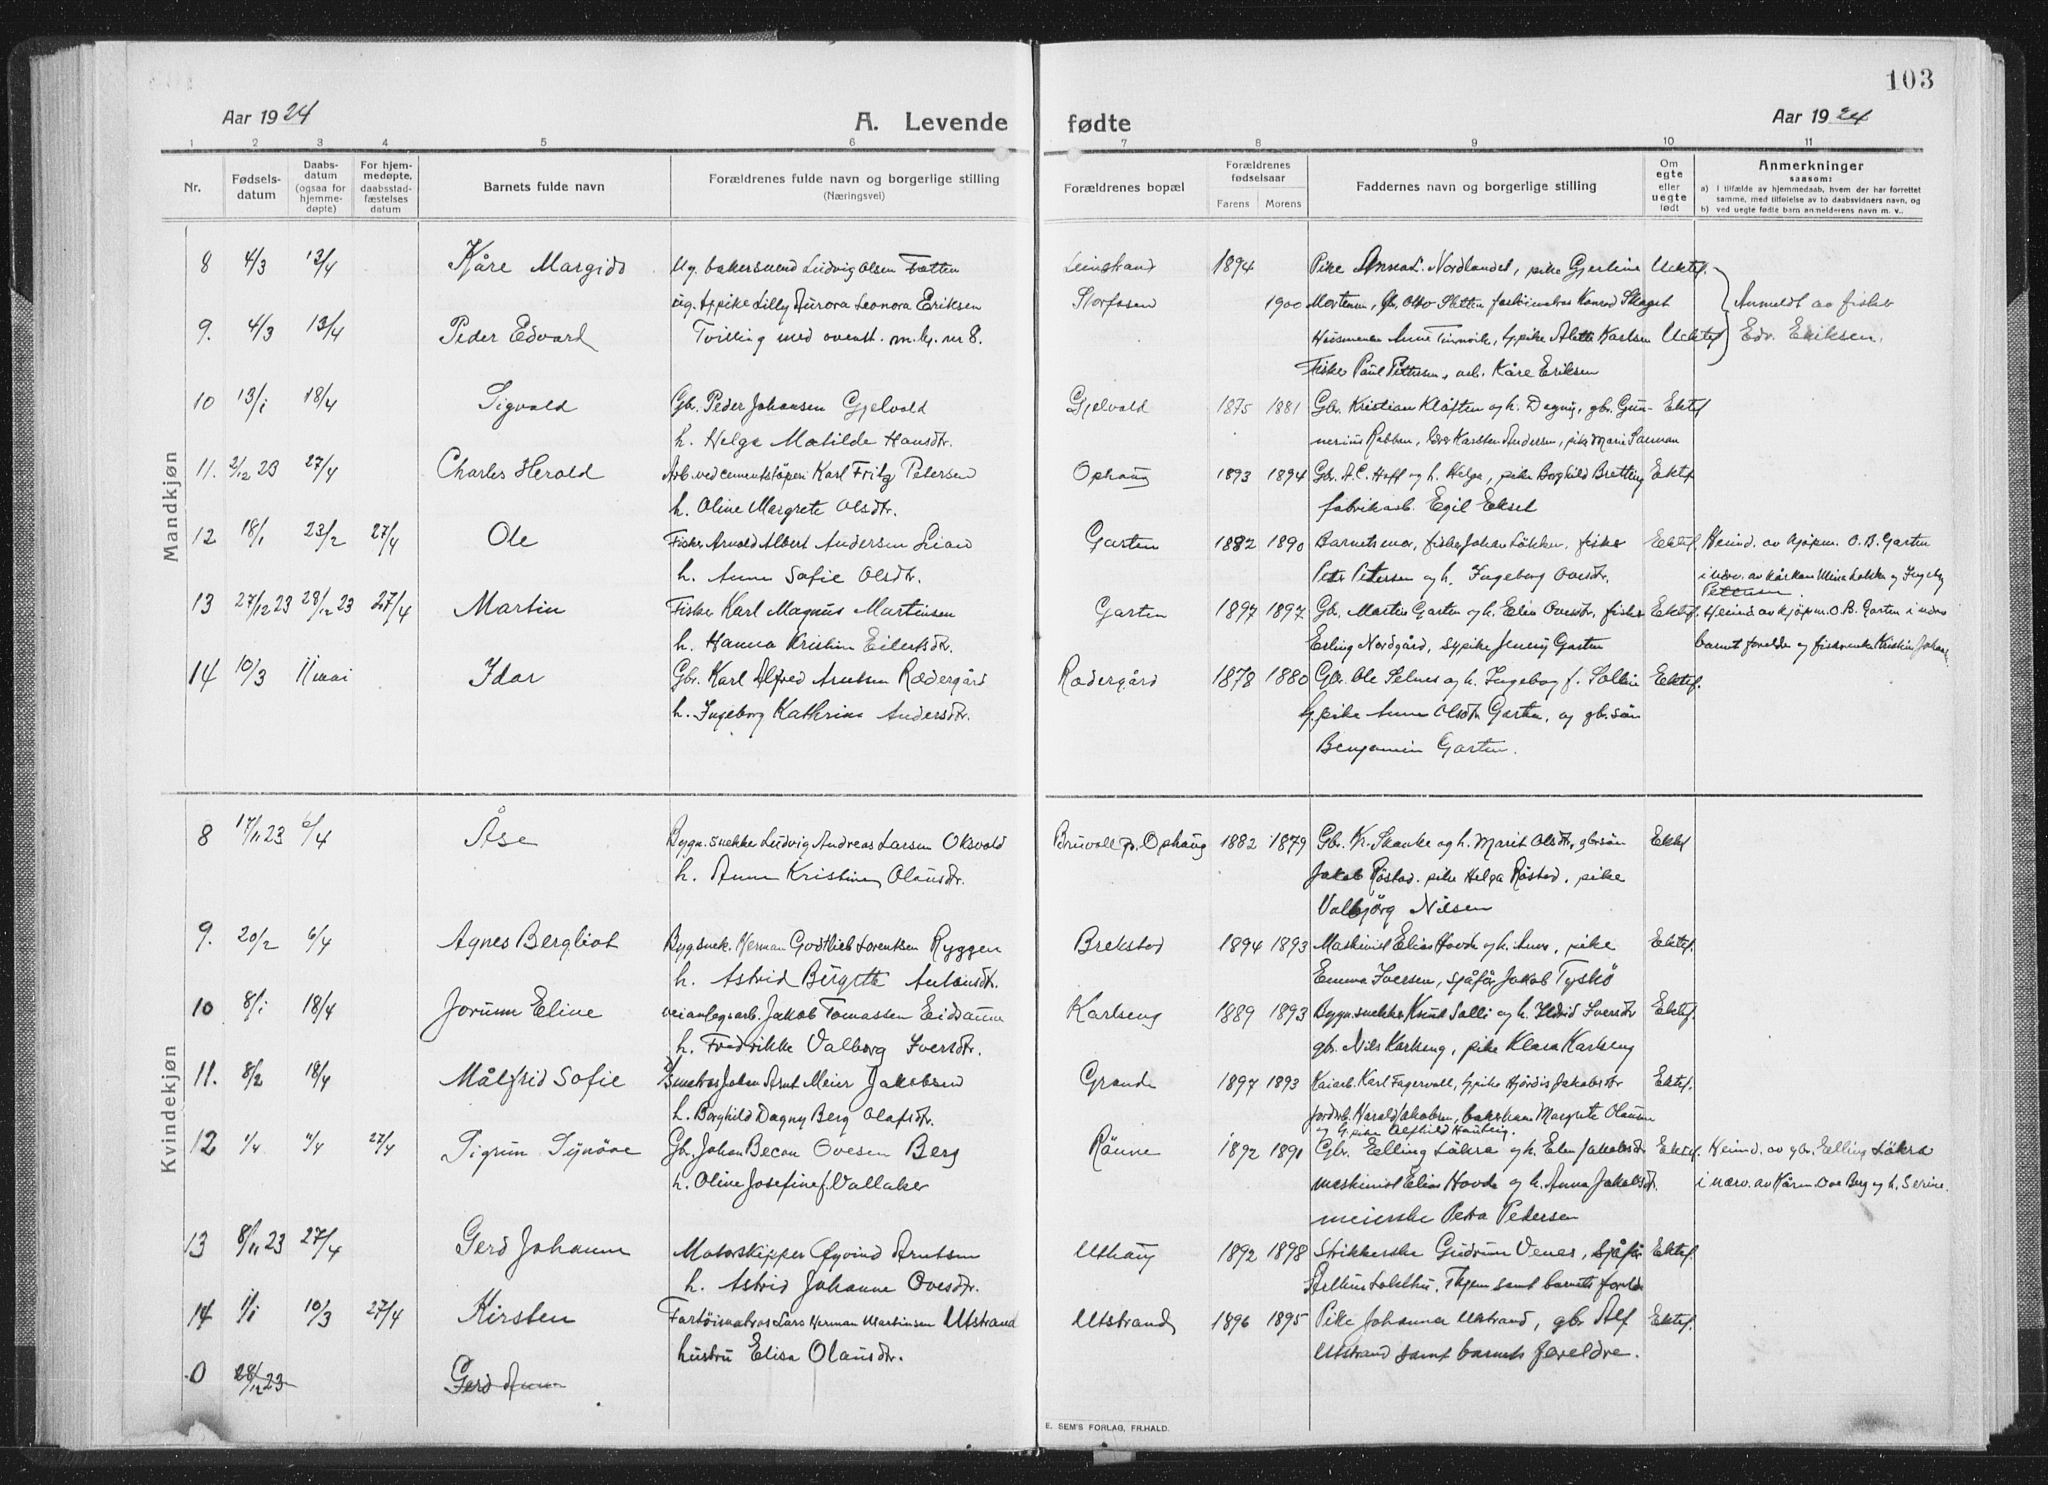 103
Aar 1924
A. Levende
fødte
Aar 1924
1 2 3 4 5 6 7 8 9 10 11
Nr.
Fødsels-
datum
Daabs-
datum
(ogsaa for
hjemme-
døpte)
For hjem-
medøpte,
daabsstad-
fæstelses
datum
Barnets fulde navn
Forældrenes fulde navn og borgerlige stilling
(Næringsvei)
Forældrenes bopæl
Forældrenes
fødselsaar
Farens Morens
Faddernes navn og borgerlige stilling
Om
egte
eller
uegte
født
Anmerkninger
saasom:
a) I tilfælde av hjemmedaab, hvem der har forrettet
samme, med tilføielse av to daabsvidners navn, og
b) ved uegte fødte barn anmelderens navn m. v..
Mandkjøn
8 4/3 13/4 Kåre Margido Ug. bakersvend Ludvig Olsen Tætten Leinstrand 1894 Pike Anna L. Nordlandet, pike Gjertine Uektef.
ug. tj.pike Lilly Aurora Leonora Eriksen Storfosen 1900 Mortensen, Gb. Otto Sletten Konrad Anmeldt av fisker
9. 4/3 13/4 Peder Edvard Tvilling med ovenst. m.kj. nr 8. Anne tj.pike Alette Karlsen Uektef Edv. Eriksen.
Fisker Paul Pettersen, arb. Kåre Eriksen
10 13/1 18/4 Sigvald Gbr. Peder Johansen Gjelvold Gjelvold 1875 1881 Gbr. Kristian Kløften og h. Dagny, gbr. Gun- Ektef
h. Helga Matilde Hansdtr. nerius Rabben, Karsten Andersen, pike Marie
11. 2/12 23 27/4 Charles Herold Arb. ved cementstøperi Karl Fritz Petersen Ophaug 1893 1894 Gbr. A. C. Hoff og h. Helga, pike Borghild Bretting Ektef
h. Oline Margrete Olsdtr. fabrikarb. Egil Ekset
12 18/1 23/2 27/4 Ole Fisker Arnold Albert Andersen Lian Garten 1882 1890 Barnets mor, fisker Johan Løkken, fisker Ektef. Heimd. av kjøpm. O. B. Garten
h. Anna Sofie Olsdtr. Peter Petersen og h. Ingeborg Ovesdtr. i nærv. av kårkone Mina Løkken og Ingeborg
Pettersen
13 27/12 23 28/12 23 27/4 Martin Fisker Karl Magnus Martinsen Garten 1897 1897 Gbr. Martin Garten og h. Elin Ovesdtr, fisker Ektef. Heimd av kjøpm. O. B. Garten i nærv
h. Hanna Kristine Eilertsdtr. Erling Nordgård, tj.pike Jenny Garten barnets foreldre og fiskerenke Kristin
14 10/3 11 mai Idar Gbr. Karl Alfred Arntsen Rødergård Rødergård 1878 1880 Gbr. Ole Selnes og h. Ingeborg f. Ektef.
h. Ingeborg Kathrine Andersdtr. tj.pike Anna Olsdtr Garten, og gb.søn
Benjamin Garten.
Kvindekjøn
8 17/11 23 6/4 Åse Bygn.snekker Ludvig Andreas Larsen Oksvold Bruvoll pr. Ophaug 1882 1879 Gbr. K. Skanke og h. Marit Olsdtr, gb.søn Ektef
h. Anna Kristine Olausdtr. Jakob Røstad, pike Helga Røstad, pike
Valbjörg Nilsen
9. 20/2 6/4 Agnes Bergliot Bygsnek. Herman Godtlieb Lorentsen Ryggen Brekstad 1894 1893 Maskinist Elias Hovde og h. Anna, pike Ektef.
h. Astrid Birgitte Antonsdtr. Emma Iversen, sjåför Jakob Tyskö
10 8/1 18/4 Jorunn Eline veianlegsarb. Jakob Tomassen Eidsaune Karlseng 1889 1893 Bygn.snekker Knut Solli og h. Iversdtr Ektef.
h. Fredrikke Valborg Iversdtr. gbr. Nils Karlseng, pike Klara Karlseng
11. 8/2 18/4 Målfrid Sofie Johan Arnt Meier Jakobsen Grande 1897 1893 Kaiarb. Karl Fagervoll, tj.pike Hjördis Jakobsdtr Ektef.
h. Borghild Dagny Berg Olafsdtr. jordarb. Harald Jakobsen, Margrete Olausen
og tj.pike Alfhild
12 1/4 4/4 27/4 Sigrun Synøve Gb. Johan Becan Ovesen Berg Rønne 1892 1891 Gbr. Elling Løkra og h. Elen Jakobsdtr Ektef. Heimd. av gbr. Elling Løkra
h. Oline Josefine f. Vallaker maskinist Elias Hovde og h. Anna Jakobsdtr. i nærv. av Kårm. Ove Berg og h. Serine.
meierske Petra Pedersen
13 8/11 23 27/4 Gerd Johanne Motorskipper Øyvind Arntsen Uthaug 1892 1898 Strikkerske Gudrun Venes, sjåför Ektef.
h. Astrid Johanne Ovesdtr. samt barnets foreldre
14 1/1 10/3 27/4 Kirsten Fartøimatros Lars Herman Martinsen Utstrand Utstrand 1896 1895 Pike Johanna Utstrand, gbr Alf Ektef.
hustru Elisa Olausdtr. Utstrand samt barnets foreldre.
0 28/12 23 Gerd Anna
E. SEM'S FORLAG, FR.HALD.